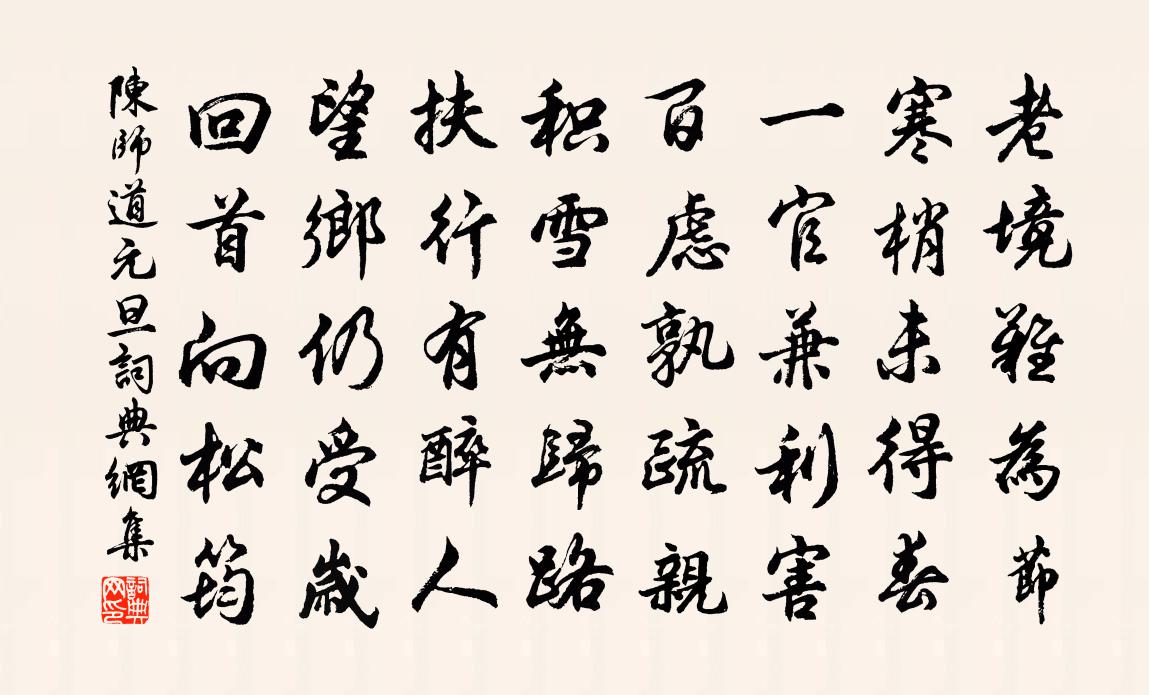 老境難為節
寒梢未得春
一官兼利害
百慮孰疏親
积雪無歸路
扶行有醉人
望鄉仍受歲
回首向松筠
陳師道元旦詞典網集
詞典網印